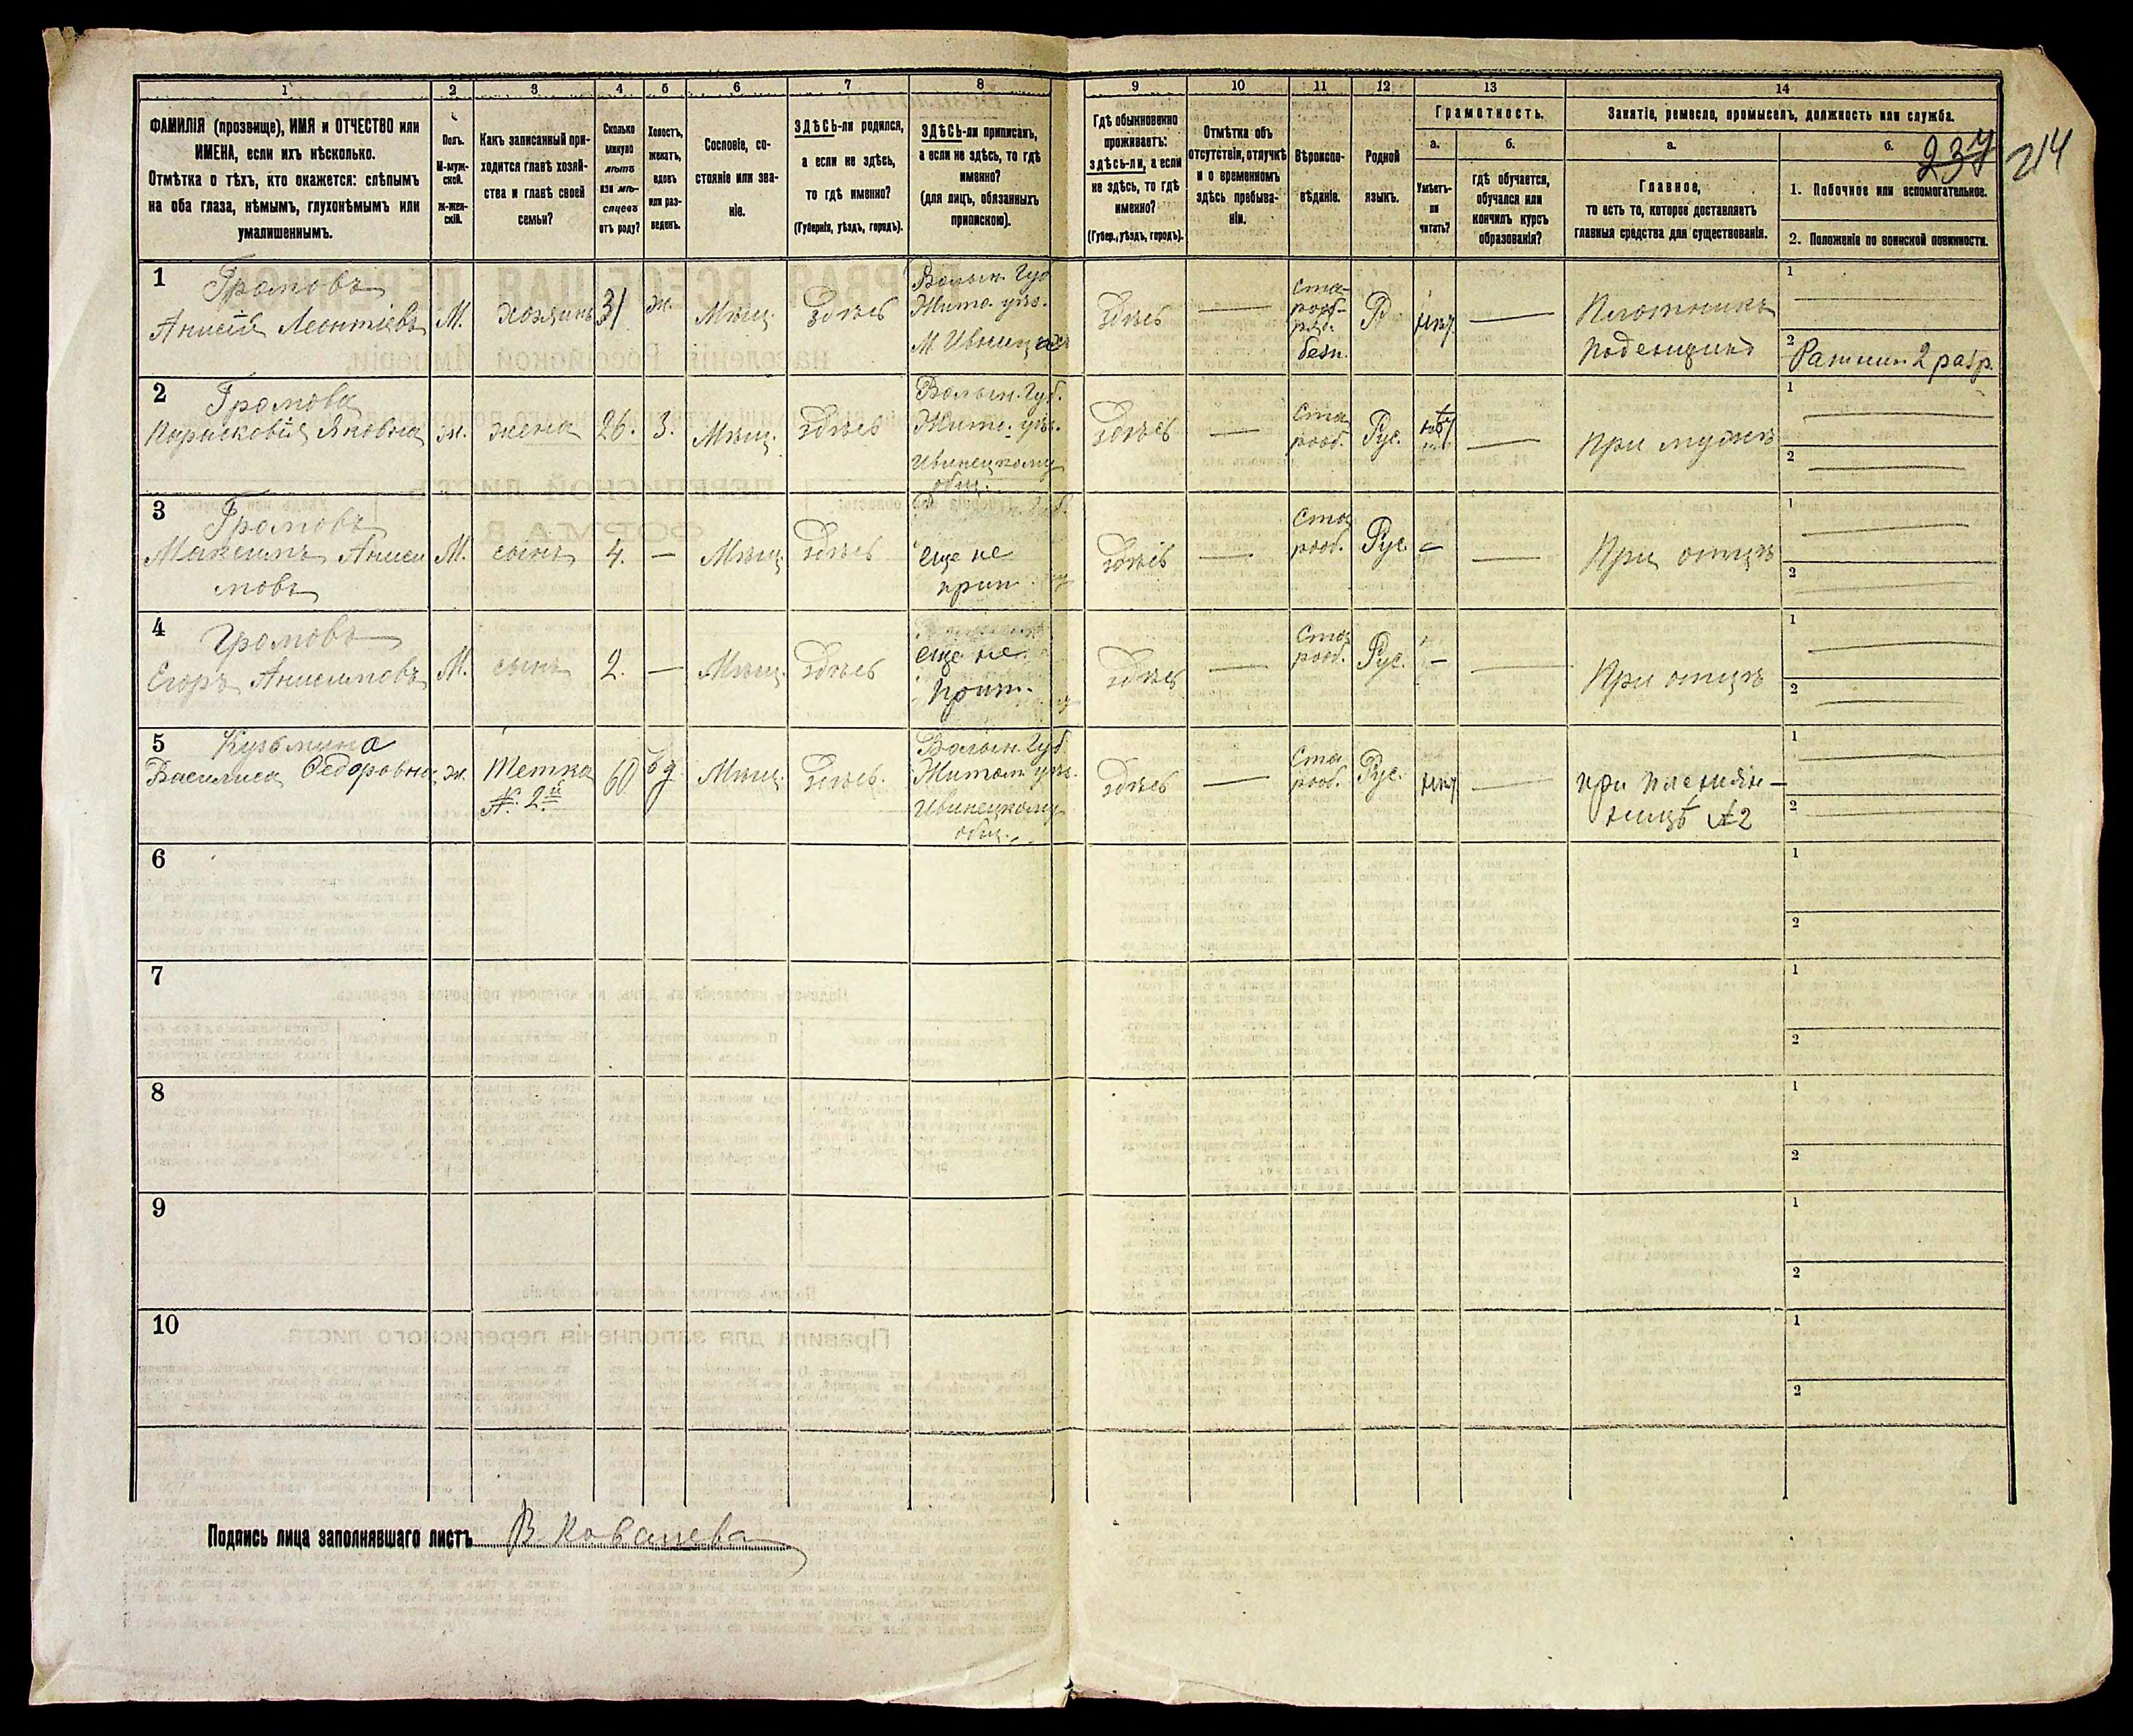 1
2
3
4
5
6
7
8
9
10
11
12
13
14
ФАМИЛІЯ (прозвище), ИМЯ и ОТЧЕСТВО или
ИМЕНА, если ихъ нѣсколько.
Отмѣтка о тѣхъ, кто окажется: слѣпымъ
на оба глаза, нѣмымъ, глухонѣмымъ или
умалишеннымъ.
Полъ.
М-муж-
ской.
ж-жен-
скій.
Какъ записанный при-
ходится главѣ хозяй-
ства и главѣ своей
семьи?
Сколько
минуло
лѣтъ
или мѣ-
сяцевъ
отъ роду?
Холостъ,
женатъ,
вдовъ
или раз-
веденъ.
Сословіе, со-
стояніе или зва-
ніе.
ЗДѢСЬ-ли родился,
а если не здѣсь,
то гдѣ именно?
(Губернія, уѣздъ, городъ).
ЗДѢСЬ-ли приписанъ,
а если не здѣсь, то гдѣ
именно?
(для лицъ, обязанныхъ
припискою).
Гдѣ обыкновенно
проживаетъ:
здѣсь-ли, а если
не здѣсь, то гдѣ
именно?
(Губер., уѣздъ, городъ).
Отмѣтка объ
отсутствіи, отлучкѣ
и о временномъ
здѣсь пребыва-
ніи.
Вѣроиспо-
вѣданіе.
Родной
языкъ.
Грамотность.
а.
Умѣетъ-
ли
читать?
б.
гдѣ обучается,
обучался или
кончилъ курсъ
образованія?
Занятіе, ремесло, промыселъ, должность или служба.
а.
Главное,
то есть то, которое доставляетъ
главныя средства для существованія.
б.
237 214
1. Побочное или вспомогательное.
2. Положеніе по воинской повинности.
1
Громовъ
Анисій Леонтіевъ
М.
хозяинъ
31
ж.
Мѣщ.
Здѣсь
Волын. Губ
Жито. уѣз.
Здѣсь
Ста-
рооб-
ряд.
безп.
Р
Плотникъ
поденщикъ
1
2
Ратник 2 разр.
2
Громова
Парасковія Яковна
ж.
жена
26.
З.
Мѣщ.
Здѣсь
Волын. Губ.
Жито. уѣз.
Ивницкому
общ.
Здѣсь
Ста
рооб.
Рус.
При мужѣ
1
2
3
Громовъ
Максимъ Аниси
мовъ
М.
сынъ
4.
Мѣщ.
Здѣсь
еще не
прип
Здѣсь
Ста
рооб.
Рус.
При отцѣ
1
2
4
Громовъ
Егоръ Анисимовъ
М.
сынъ
2.
Мѣщ.
Здѣсь
еще не
прип.
Здѣсь
Ста
рооб.
Рус.
При отцѣ
1
2
5
Кузьмина
Василиса Ѳедоровна
ж.
Тетка
№ 2й
60
вд
Мѣщ.
Здѣсь.
Волын. Губ.
Житом. уѣз.
Ивницкому
общ.
Здѣсь
Ста
рооб.
Рус.
при племян-
ницѣ № 2
1
2
6
1
2
7
1
2
8
1
2
9
1
2
10
1
2
Подпись лица заполнявшаго листъ